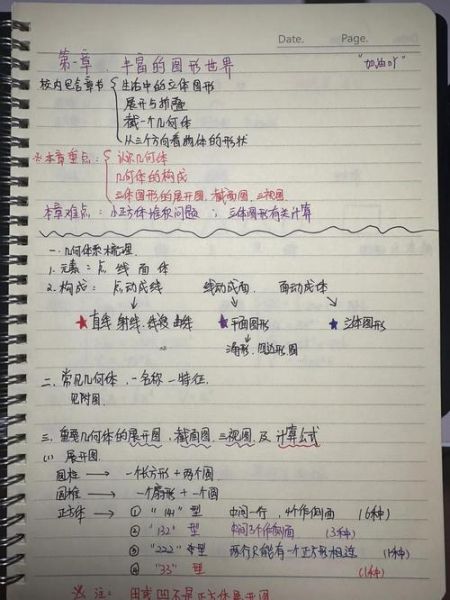 Date. Page.
第一章. 丰富的图形世界
"加油吖"
校内包含章节
生活中的立体图形
展开与折叠
截一个几何体
从三个方向看物体的形状
※本章重点:
认识几何体
几何体的构成
立体图形的展开图、截面图、三视图
本章难点: 小正方体堆积问题; 立体图形有关计算
一. 几何体系梳理.
1. 元素: 点 线 面 体
2. 构成: 点动成线 线动成面. 面动成体
★直线 射线、线段 曲线 ★平面图形 ★立体图形
三角形、四边形 圆
二. 常见几何体, -名称 -特征.
见附图.
三. 重要几何体的展开图, 截面图、三视图 及 计算公式
(1) 展开图.
圆柱 → 一个长方形+两个圆
圆锥 → 一个扇形+一个圆
正方体 → ① "141" 型 中间一行, 4个作侧面 (6种)
② "132" 型 中间3个作侧面 (3种)
③ "222" 型 两行只能有一个正方形相连 (1种)
④ "33" 型 (1种)
※ 注: 田或凹不是正方体展开图